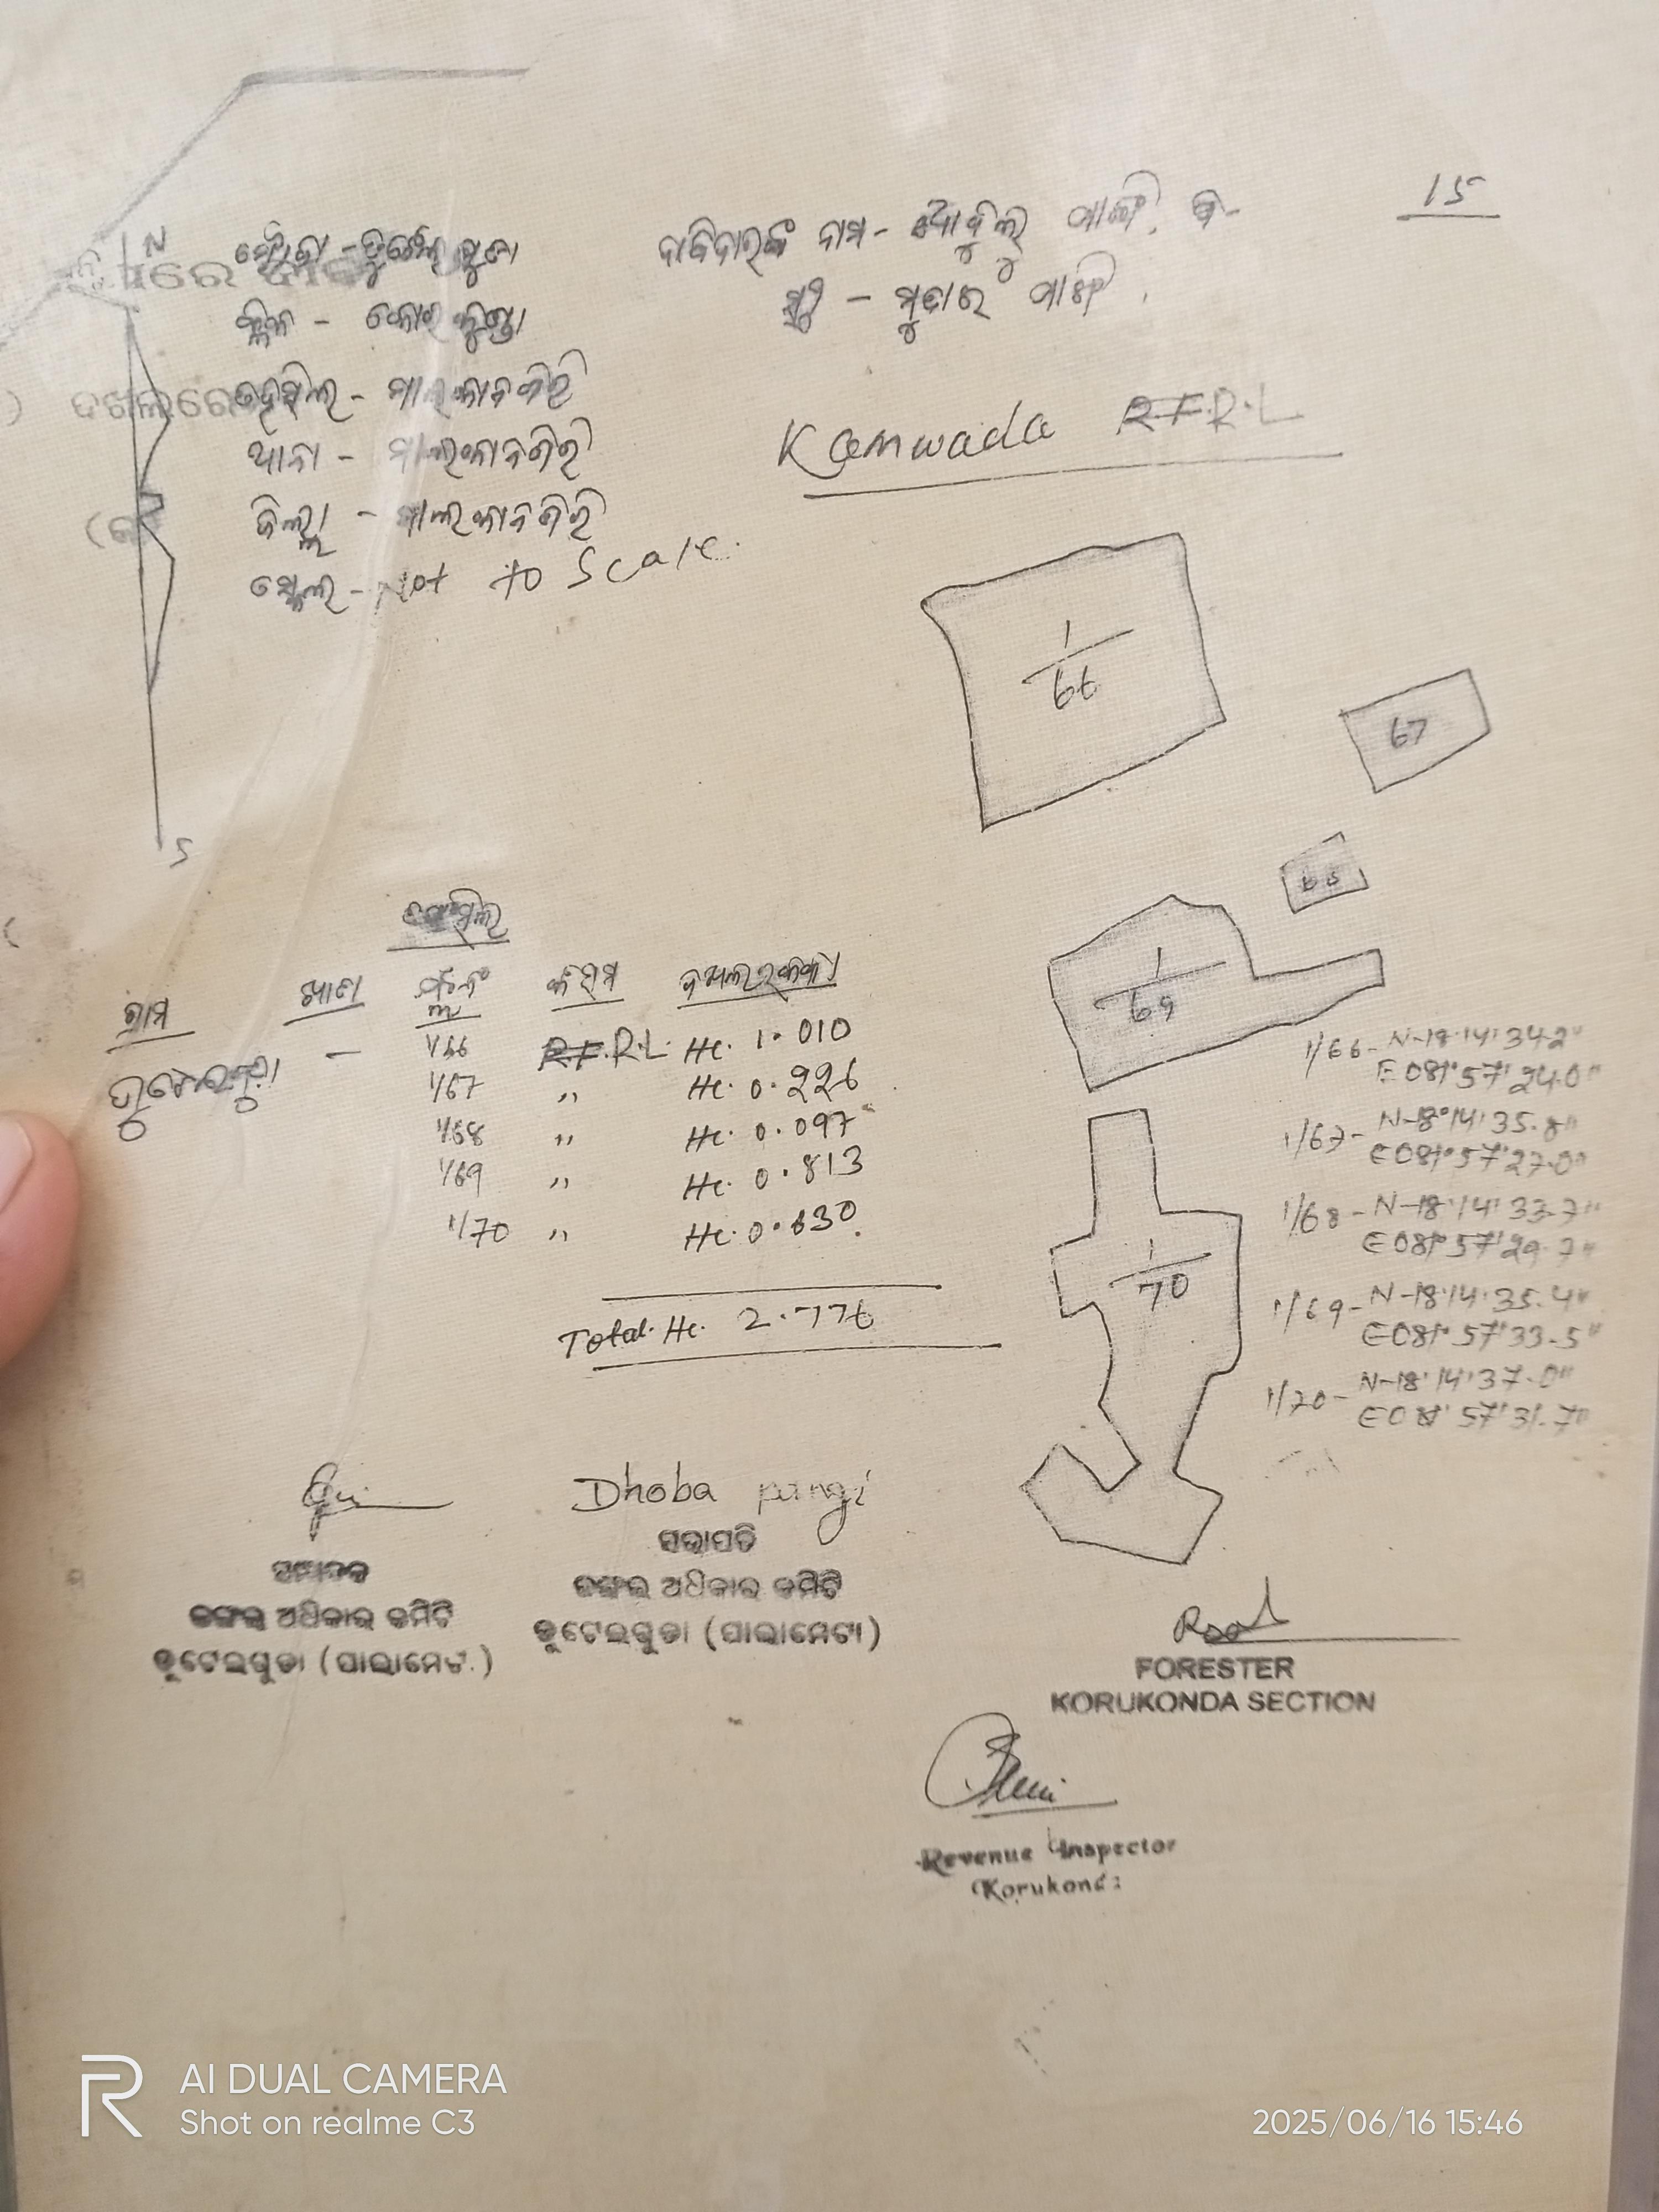 15
N
ମୌଜା - ଡୁଟେଲଗୁଡା
ଦାବିଦାରଙ୍କ ନାମ - ପାଙ୍ଗି
- କୋରୁକୁଣ୍ଡା
ମୁଦାରେ ପାଙ୍ଗି
ଦଖଲରେ
ତହସିଲ - ମାଲକାନଗିରି
Kamwada R.F.R.L
ଥାନା - ମାଲକାନଗିରି
ଜିଲ୍ଲା - ମାଲକାନଗିରି
ସ୍କେଲ - Not to Scale.
1/66
67
68
S
ତଫସିଲ
ଗ୍ରାମ ଖାତା କିସମ
ଡୁଟେଲଗୁଡା - 1/66 R.F.R.L. Hc. 1.010
1/67 ,, Hc. 0.226
1/68 ,, Hc. 0.097
1/69 ,, Hc. 0.813
1/70 ,, Hc. 0.630
Total. Hc. 2.776
1/69
1/70
1/66 - N-18°14'34.2"
E 081°57'24.0"
1/67 - N-18°14'35.8"
E 081°57'27.0"
1/68 - N-18°14'33.7"
E 081°57'29.7"
1/69 - N-18°14'35.4"
E 081°57'33.5"
1/70 - N-18°14'37.0"
E 081°57'31.7"
Dhoba pangi
ସମ୍ପାଦକ
ଜଙ୍ଗଲ ଅଧିକାର କମିଟି
ଡୁଟେଲଗୁଡା (ପାଲାମେଟା)
ସଭାପତି
ଜଙ୍ଗଲ ଅଧିକାର କମିଟି
ଡୁଟେଲଗୁଡା (ପାଲାମେଟା)
FORESTER
KORUKONDA SECTION
Revenue Inspector
Korukond
AI DUAL CAMERA
Shot on realme C3
2025/06/16 15:46